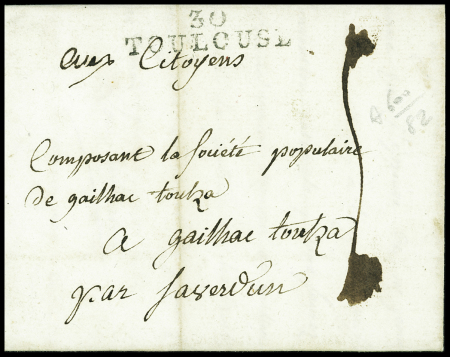 30
TOULOUSE
aux Citoyens
Composant la Société populaire
de gailhac toulza
a gailhac toulza
par Saverdun